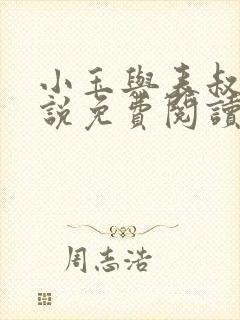 小玉與表叔
說免費閱讀
周志浩